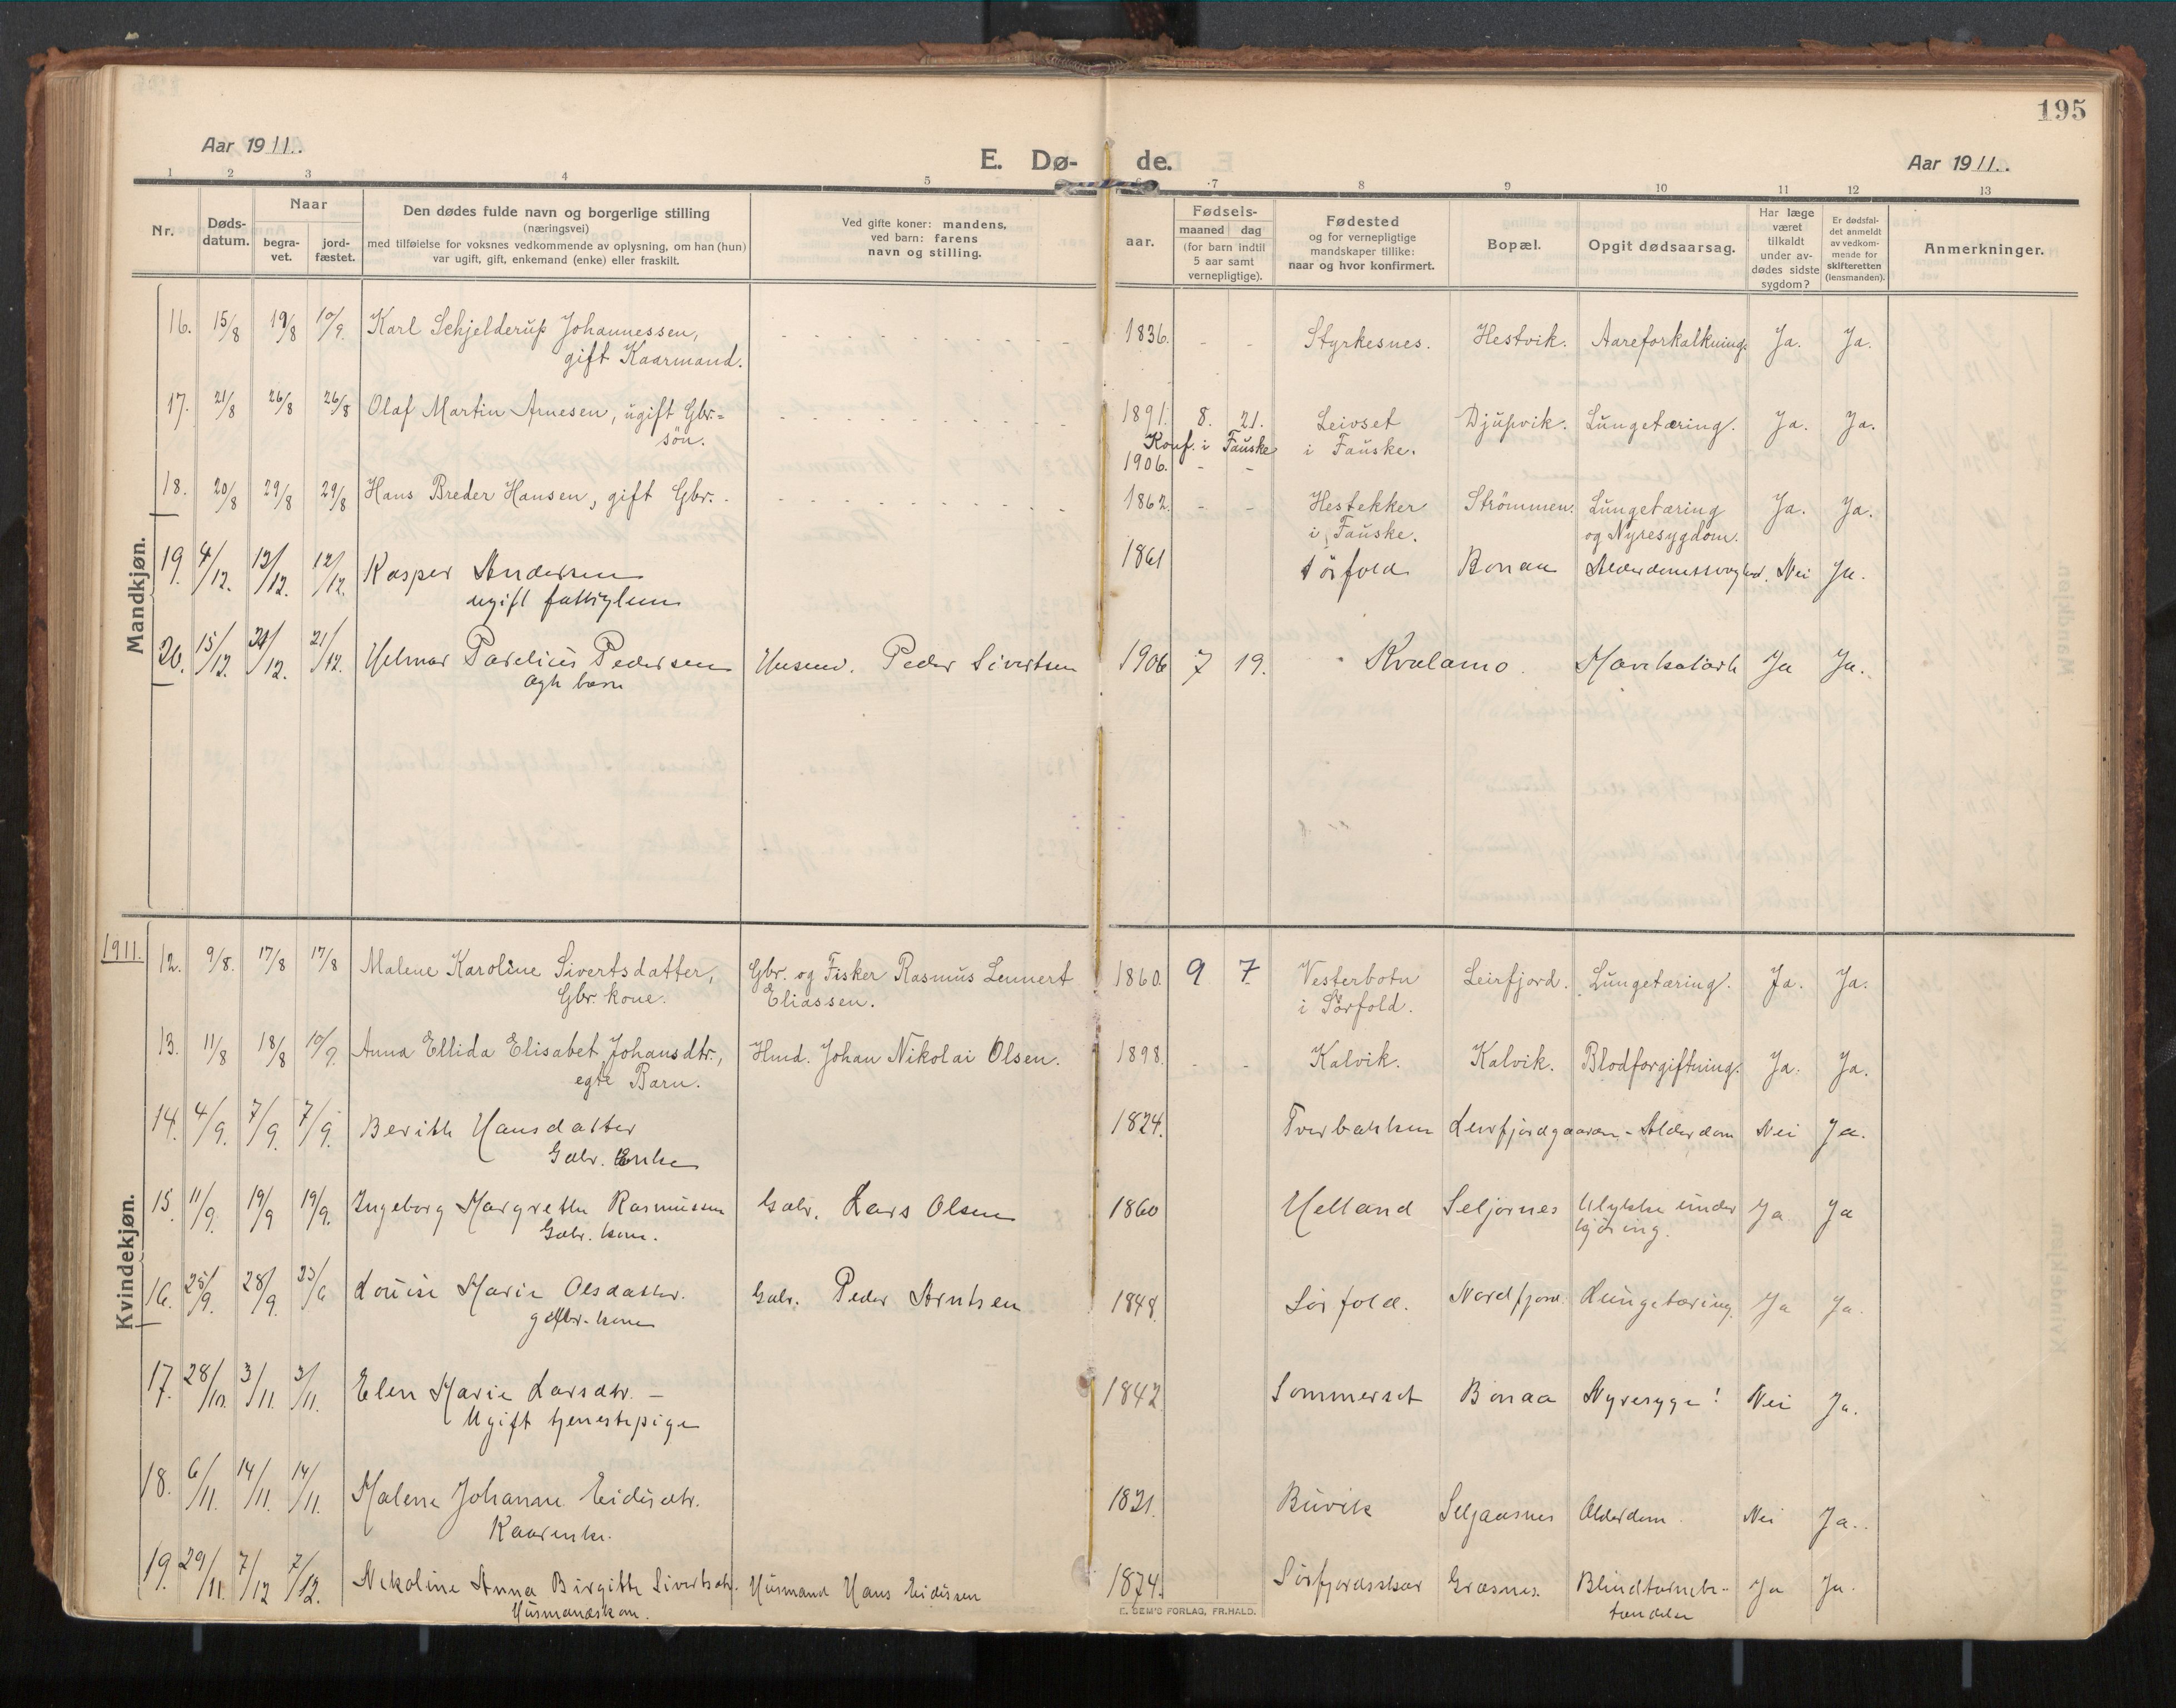 195
Aar 1911.
E. Dø- de.
Aar 1911.
1 2 3 4 5 6 7 8 9 10 11 12 13
Nr.
Døds-
datum.
Naar
begra-
vet.
jord-
fæstet.
Den dødes fulde navn og borgerlige stilling
(næringsvei)
med tilføielse for voksnes vedkommende av oplysning, om han (hun)
var ugift, gift, enkemand (enke) eller fraskilt.
Ved gifte koner: mandens,
ved barn: farens
navn og stilling.
aar.
Fødsels-
maaned dag
(for barn indtil
5 aar samt
vernepligtige).
Fødested
og for vernepligtige
mandskaper tillike:
naar og hvor konfirmert.
Bopæl.
Opgit dødsaarsag.
Har læge
været
tilkaldt
under av-
dødes sidste
sygdom?
Er dødsfal-
det anmeldt
av vedkom-
mende for
skifteretten
(lensmanden).
Anmerkninger.
Mandkjøn.
16. 15/8 19/8 10/9. Karl Schjelderup Johannessen, 1836. - - Styrkesnes. Hestvik. Aareforkalkning. Ja. Ja.
gift Kaarmand.
17. 21/8 26/8 26/8 Olaf Martin Arnesen, ugift Gbr= 1891. 8. 21. Leivset Djupvik. Lungetæring. Ja. Ja.
søn. Konf. i Fauske i Fauske.
1906. - -
18. 20/8 29/8 29/8 Hans Breder Hansen, gift Gbr. 1862. - - Hestekker Strömmen. Lungetæring Ja. Ja.
i Fauske. og Nyresygdom.
19. 4/12. 12/12. 12/12. Kasper Andersen 1861 Sörfold Bonaa Nei Ja.
ugift fattiglem
20. 15/12. 21/12. 21/12. Helmer Parelius Pedersen Husmd. Peder Sivertsen 1906 7 19. Kvalamo. Ja Ja.
ægte barn
Kvindekjøn.
1911.
12. 9/8. 17/8 17/8 Malene Karoline Sivertsdatter, Gbr. og Fisker Rasmus Lennert 1860. 9 7. Vesterbotn Leirfjord. Lungetæring. Ja. Ja.
Gbr. kone. Eliassen. i Sörfold.
13. 11/8 18/8 10/9. Anna Ellida Elisabet Johansdtr., Hmd. Johan Nikolai Olsen. 1898. - - Kalvik. Kalvik. Blodforgiftning. Ja. Ja.
egte Barn.
14. 4/9. 7/9. 7/9. Berith Hansdatter 1824. Tverbakken Leirfjordgaarden - Alderdom Nei Ja.
Gabr. Enke
15. 11/9. 19/9 19/9. Ingeborg Margrethe Rasmussen Gabr. Lars Olsen 1860 Helland Seljesnes Ulykke under Ja Ja
Gabr. kone. kjöring.
16. 25/9. 28/9. 23/6 Louise Marie Olsdatter. Gabr. Peder Arntsen 1848. Sörfold. Nordfjord. Lungetæring. Ja Ja.
gdbr. kone
17. 28/10. 3/11. 3/11. Elen Marie Larsdtr. - 1842 Sommerset Bonaa Nyresyge! Nei Ja.
Ugift tjenestepige
18. 6/11. 14/11. 14/11. Malene Johanne Eidisdtr. 1821. Buvik Seljaasnes Alderdom. Nei Ja.
Kaarenke.
19. 29/11. 7/12 7/12. Nikoline Anna Birgitte Sivertsdtr. Husmand Hans Eidissen 1874. Sörfjordsskar Græsnes. Blindtarmbe- Ja Ja.
Husmandskone. tændelse
E. SEM'S FORLAG, FR.HALD.